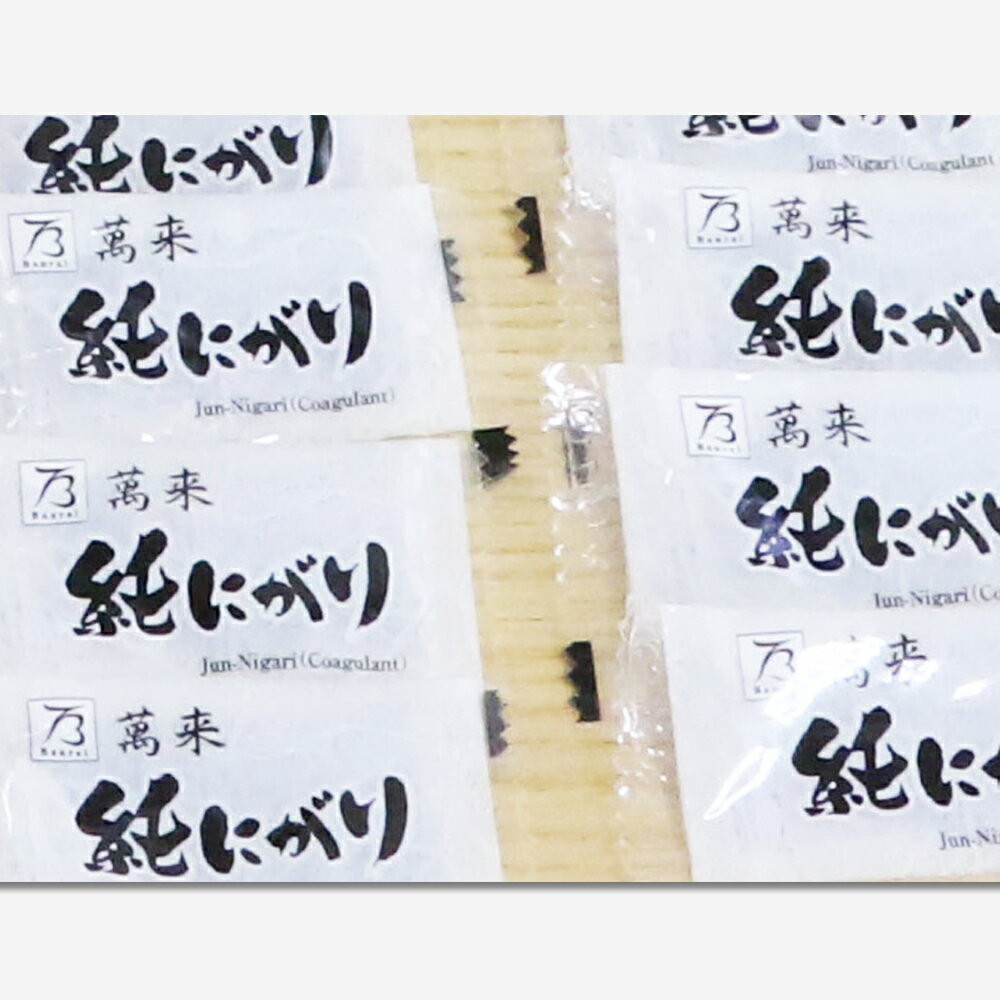 純にがり
乃
Banrai
萬来
純にがり
Jun-Nigari(Coagulant)
乃
Banrai
萬来
純にがり
Jun-Nigari(Coagulant)
乃
Banrai
萬来
純にがり
Jun-Nigari(Coagulant
乃
Banrai
萬来
純にが
乃
Banrai
萬来
純にが
Jun-Nigari(Co
乃
来
純に
Jun-Ni